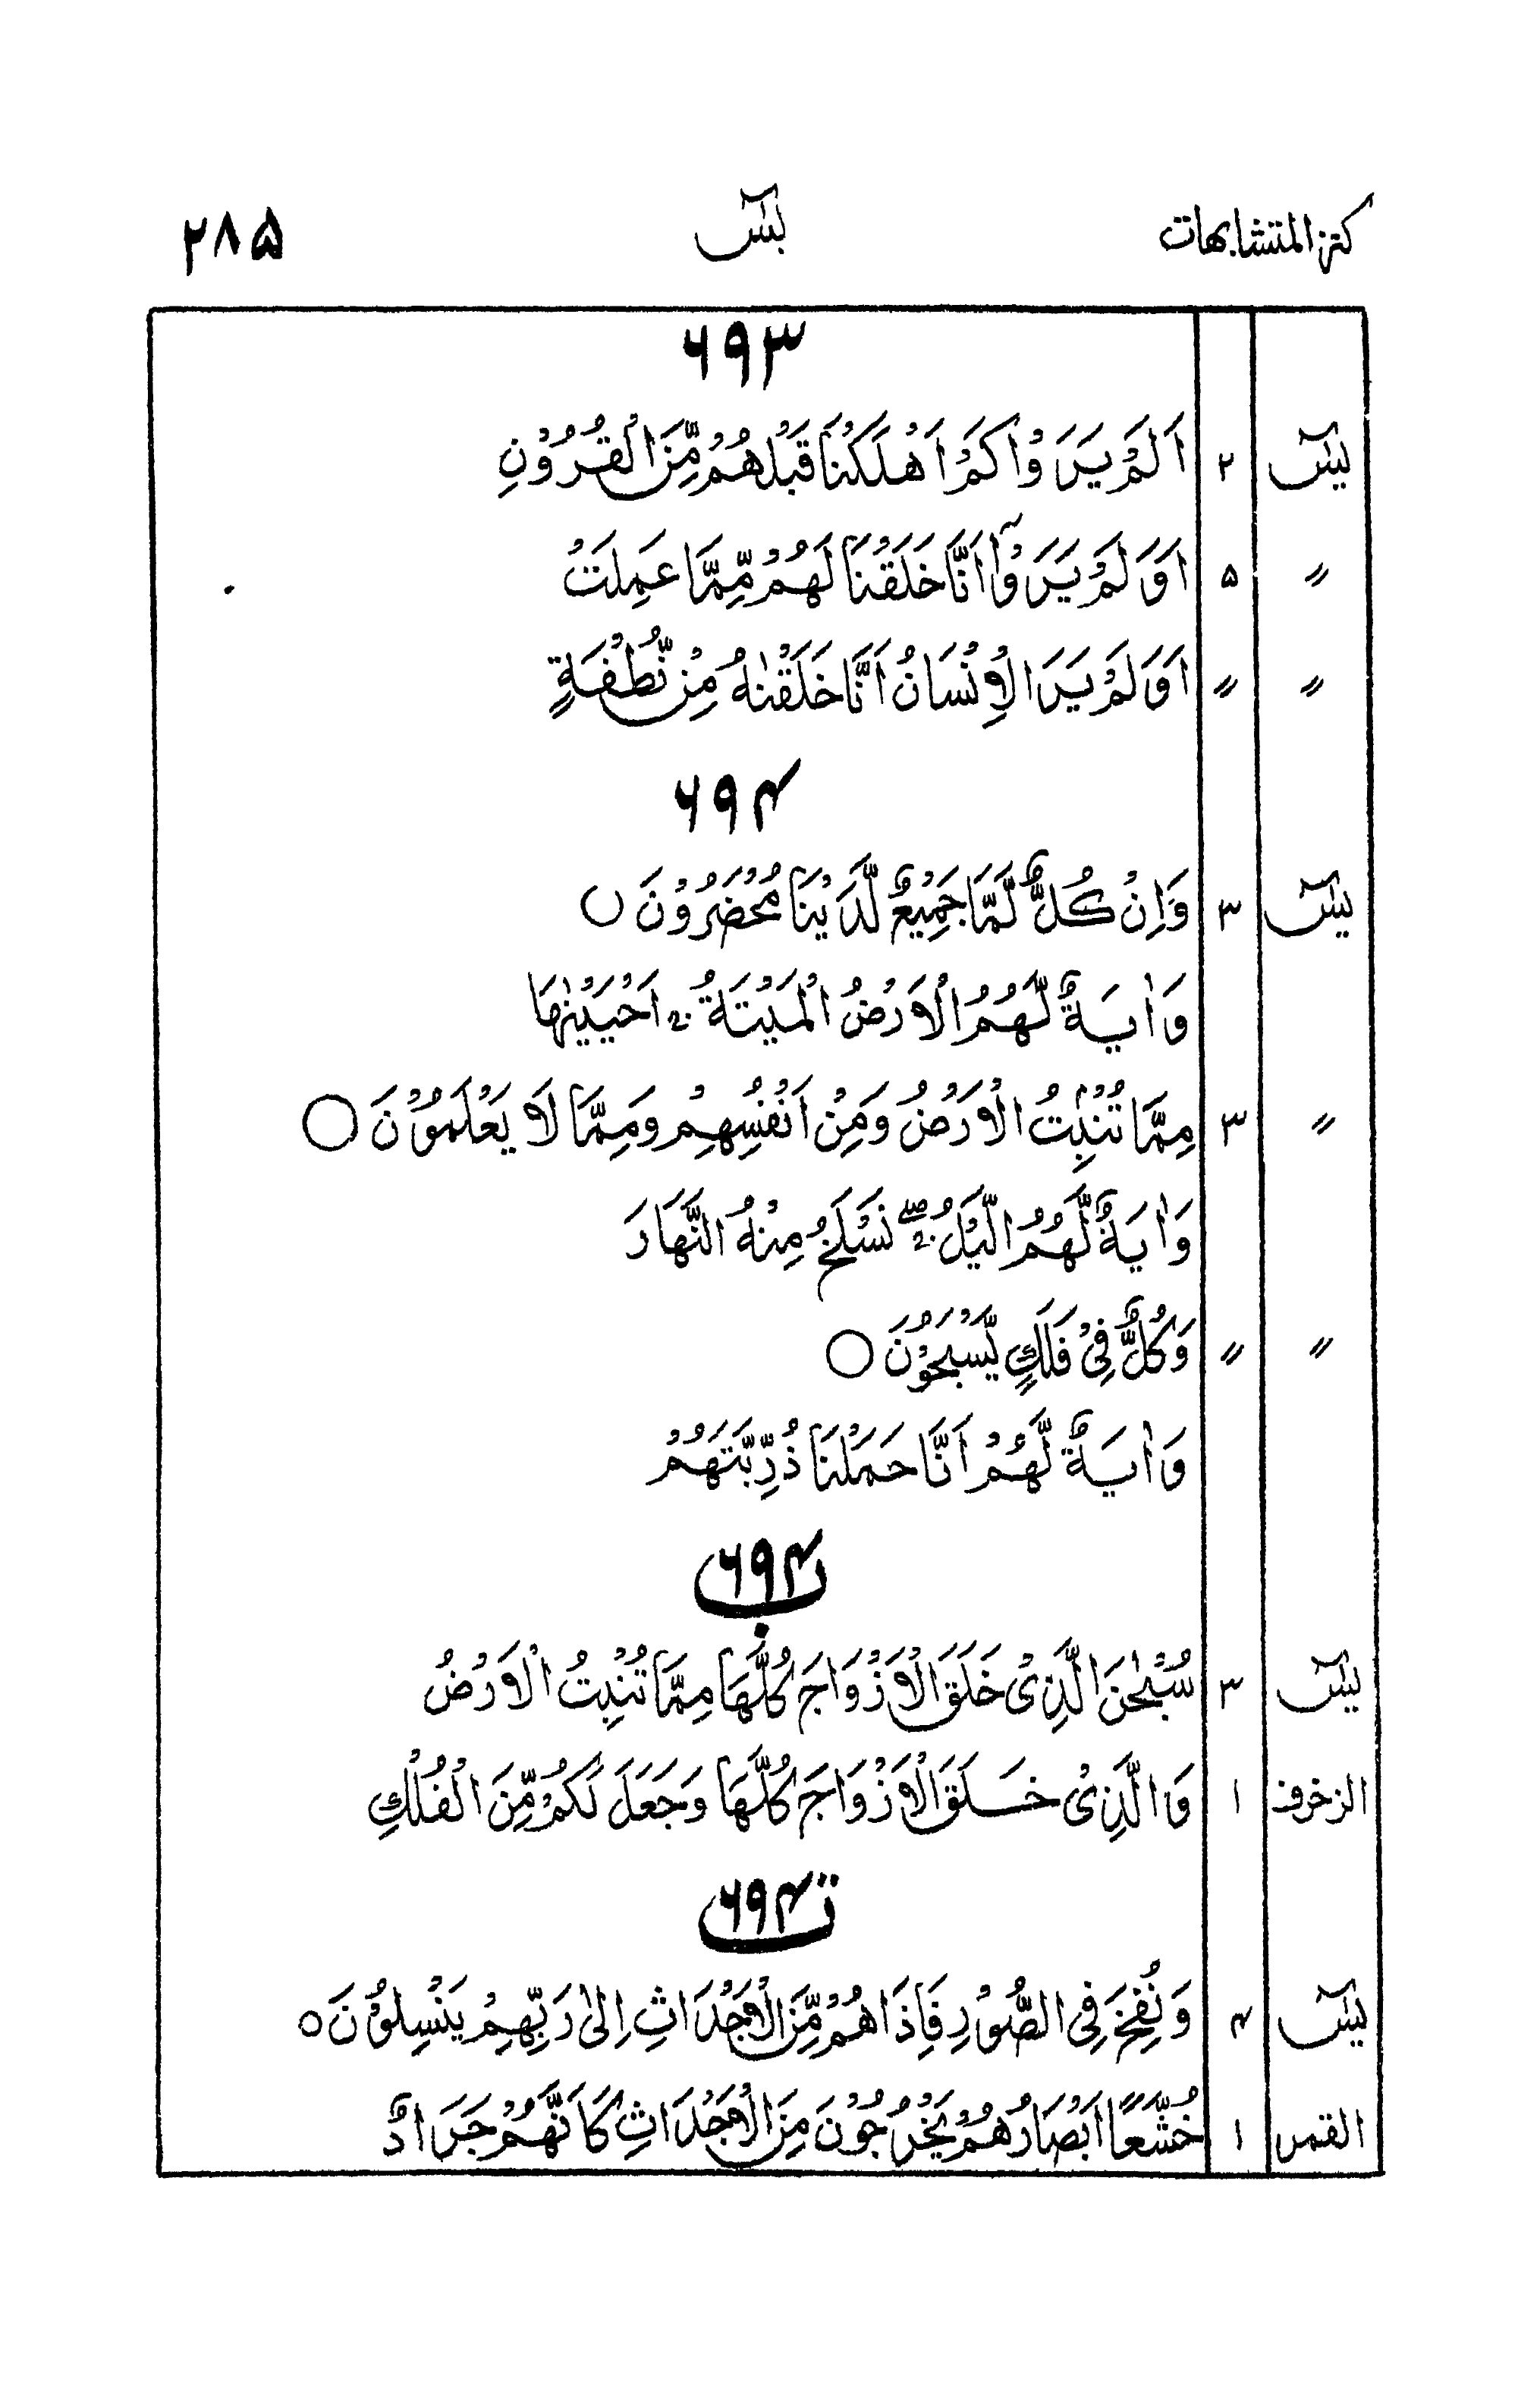 کنز المتشابهات یٰسٓ ۲۸۵
۶۹۳
یٰسٓ ۲ اَلَمْ یَرَوْا كَمْ اَهْلَكْنَا قَبْلَهُمْ مِّنَ الْقُرُوْنِ
〃 ۵ اَوَلَمْ یَرَوْا اَنَّا خَلَقْنَا لَهُمْ مِّمَّا عَمِلَتْ
〃 〃 اَوَلَمْ یَرَ الْاِنْسَانُ اَنَّا خَلَقْنٰهُ مِنْ نُّطْفَةٍ
۶۹۴
یٰسٓ ۳ وَاِنْ كُلٌّ لَّمَّا جَمِیْعٌ لَّدَیْنَا مُحْضَرُوْنَ ○
وَاٰیَةٌ لَّهُمُ الْاَرْضُ الْمَیْتَةُ اَحْیَیْنٰهَا
〃 ۳ مِمَّا تُنْۢبِتُ الْاَرْضُ وَمِنْ اَنْفُسِهِمْ وَمِمَّا لَا یَعْلَمُوْنَ ○
وَاٰیَةٌ لَّهُمُ الَّیْلُ ۖ نَسْلَخُ مِنْهُ النَّهَارَ
〃 〃 وَكُلٌّ فِیْ فَلَكٍ یَّسْبَحُوْنَ ○
وَاٰیَةٌ لَّهُمْ اَنَّا حَمَلْنَا ذُرِّیَّتَهُمْ
۶۹۴ ب
یٰسٓ ۳ سُبْحٰنَ الَّذِیْ خَلَقَ الْاَزْوَاجَ كُلَّهَا مِمَّا تُنْۢبِتُ الْاَرْضُ
الزخرف ۱ وَالَّذِیْ خَلَقَ الْاَزْوَاجَ كُلَّهَا وَجَعَلَ لَكُمْ مِّنَ الْفُلْكِ
۶۹۴ ت
یٰسٓ ۴ وَنُفِخَ فِی الصُّوْرِ فَاِذَا هُمْ مِّنَ الْاَجْدَاثِ اِلٰی رَبِّهِمْ یَنْسِلُوْنَ ○
القمر ۱ خُشَّعًا اَبْصَارُهُمْ یَخْرُجُوْنَ مِنَ الْاَجْدَاثِ كَاَنَّهُمْ جَرَادٌ